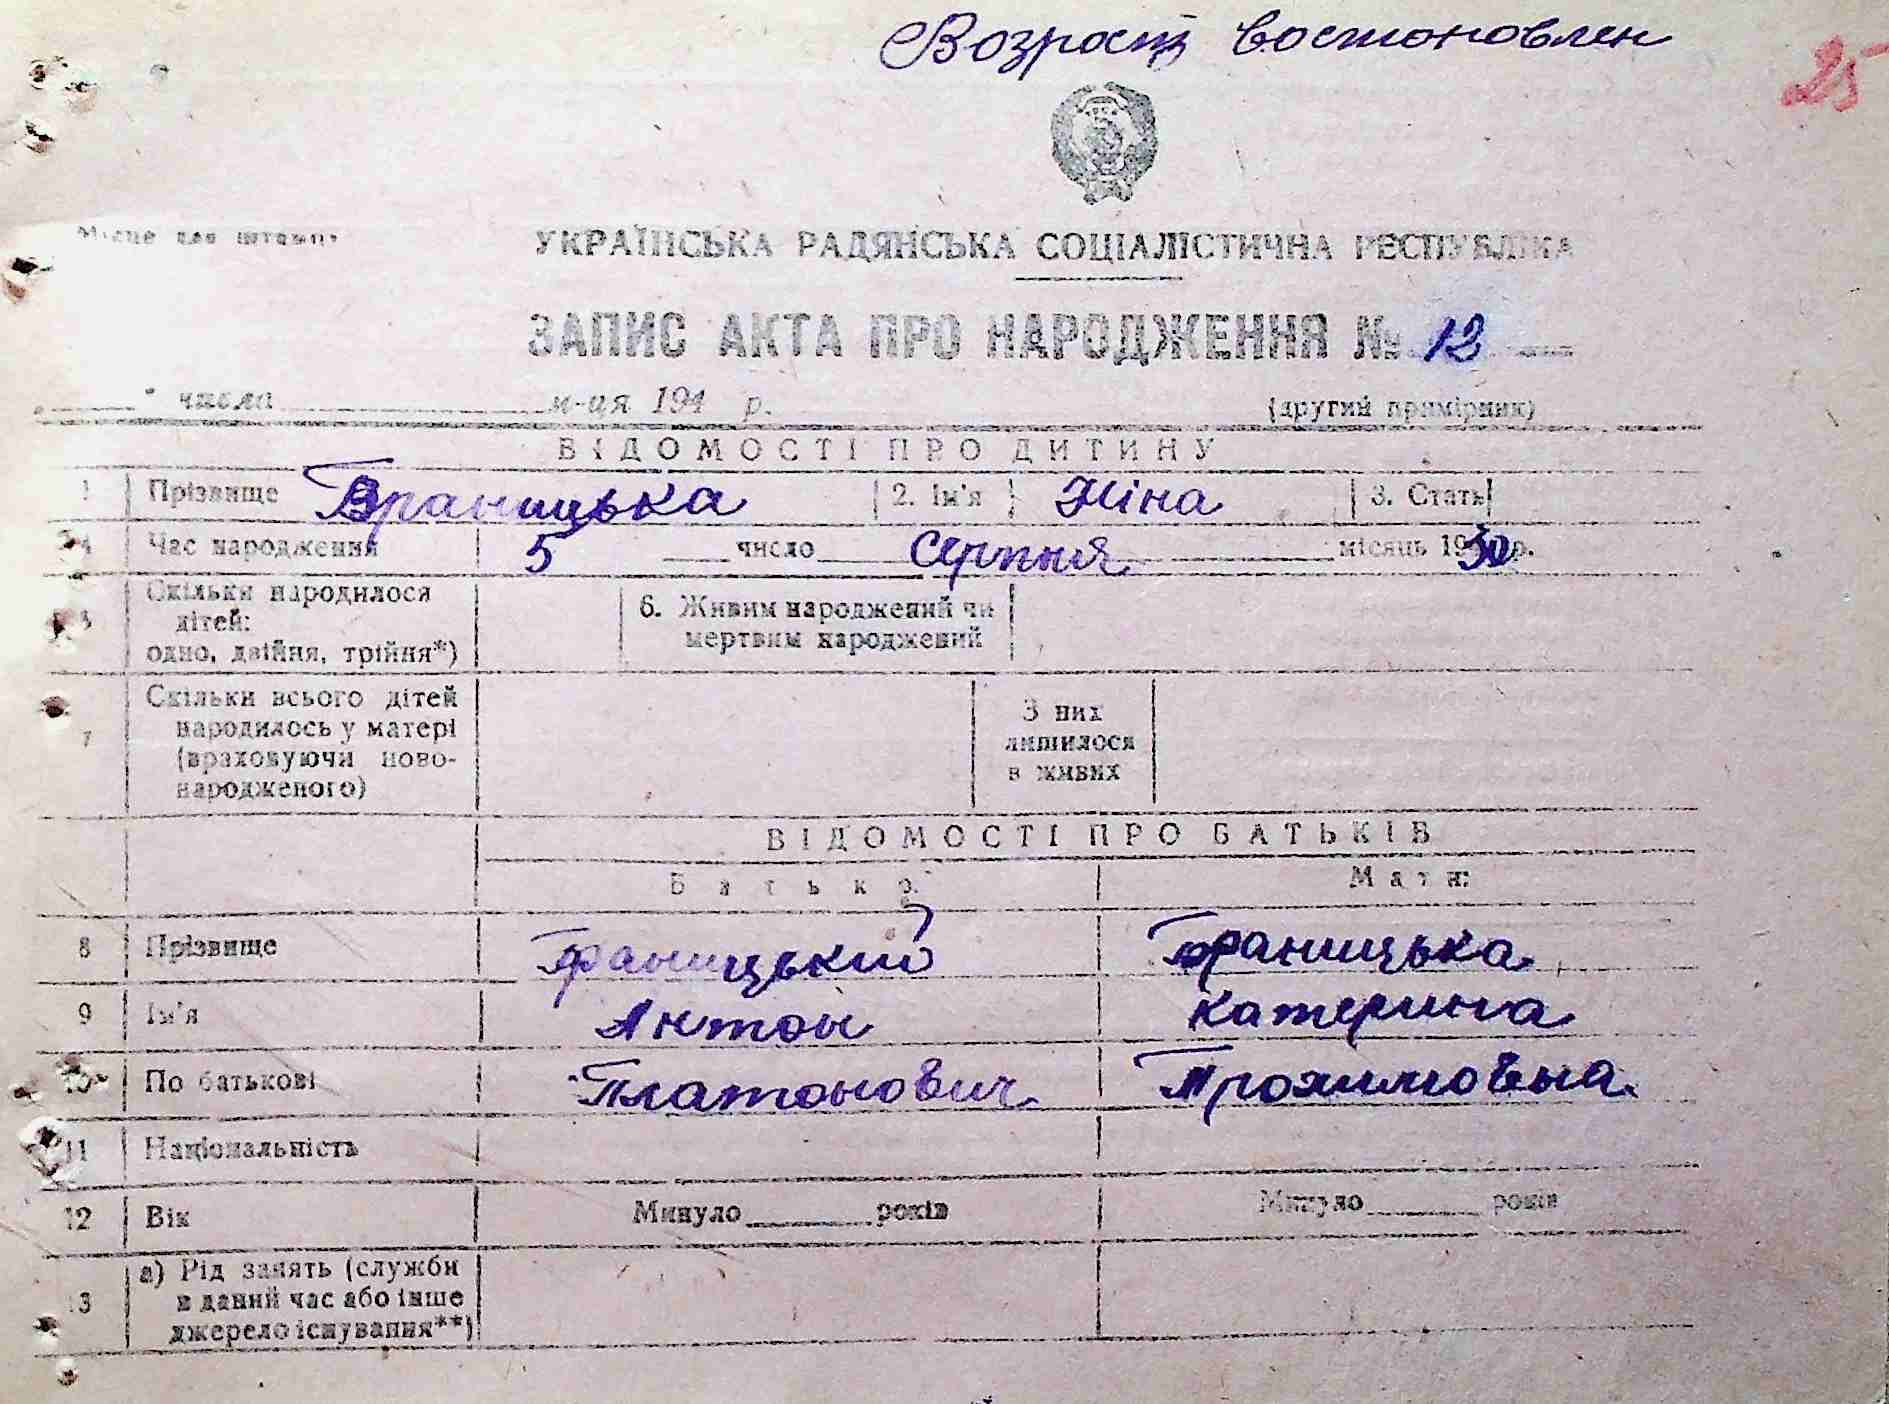 Возраст востоновлен
25
Місце для штампу
УКРАЇНСЬКА РАДЯНСЬКА СОЦІАЛІСТИЧНА РЕСПУБЛІКА
ЗАПИС АКТА ПРО НАРОДЖЕННЯ № 12
" числа м-ця 194 р. (другий примірник)
ВІДОМОСТІ ПРО ДИТИНУ
1 Прізвище Враницька 2. Ім'я Ніна 3. Стать
4 Час народження 5 число Серпня місяць 1930 р.
5 Скільки народилося дітей: одно, двійня, трійня*) 6. Живим народжений чи мертвим народжений
7 Скільки всього дітей народилось у матері (враховуючи новонародженого) З них лишилося в живих
ВІДОМОСТІ ПРО БАТЬКІВ
Батько: Мати:
8 Прізвище Враницький Враницька
9 Ім'я Антон Катерина
10 По батькові Платонович Трохимовна
11 Національність
12 Вік Минуло років Минуло років
13 а) Рід занять (служби
в даний час або інше
джерело існування**)